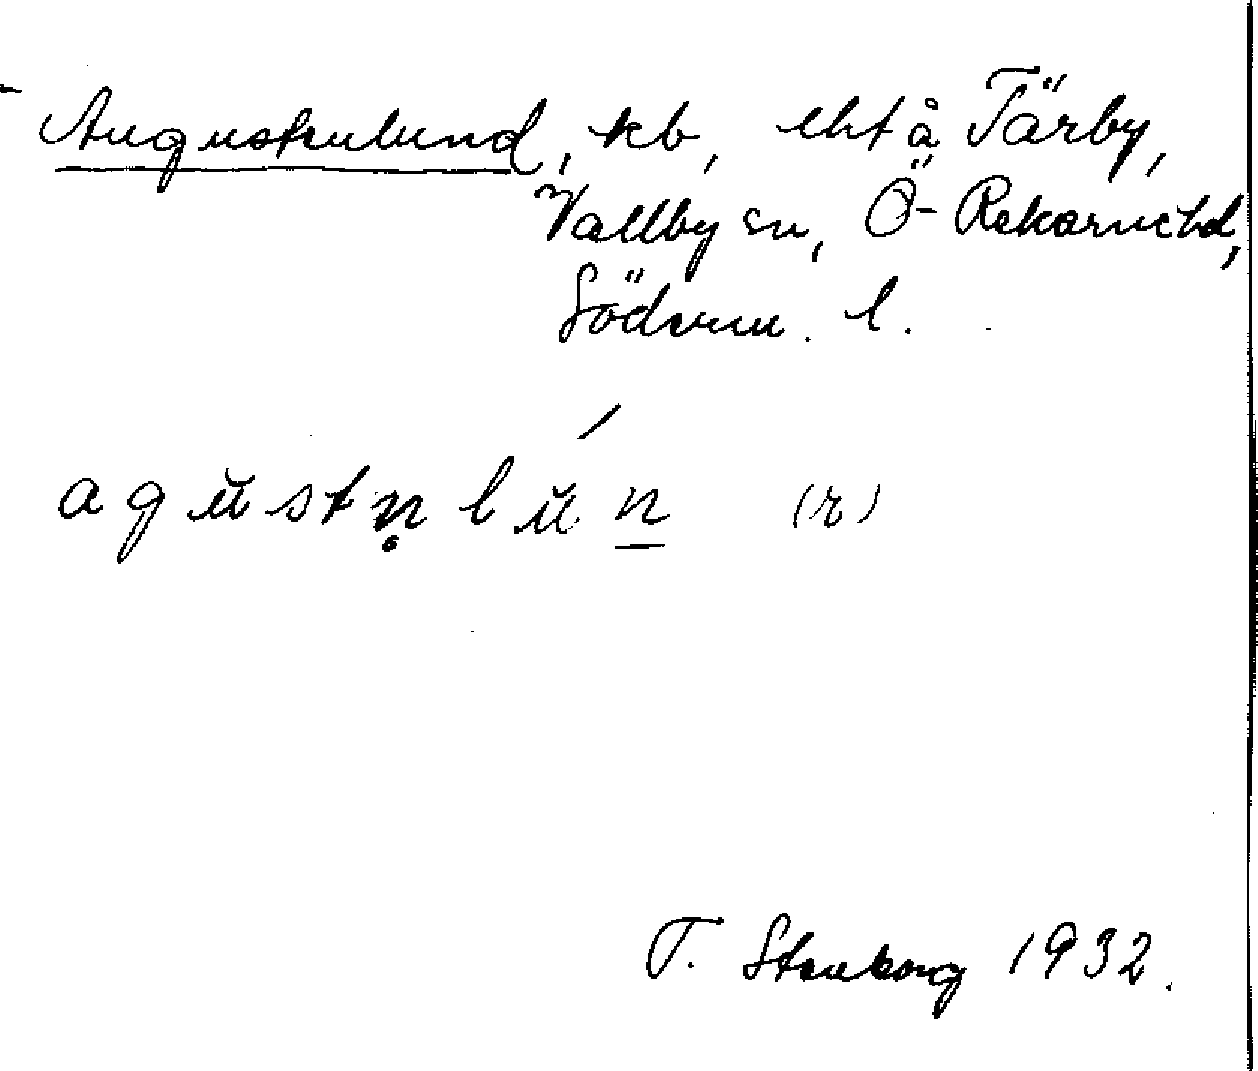 Augustenlund, kb, eht å Tärby,
Vallby sn, Ö-Rekarne hd,
Söderm. l.
agŭstn̥lŭ́n̲ (r)
T. Stenborg 1932.